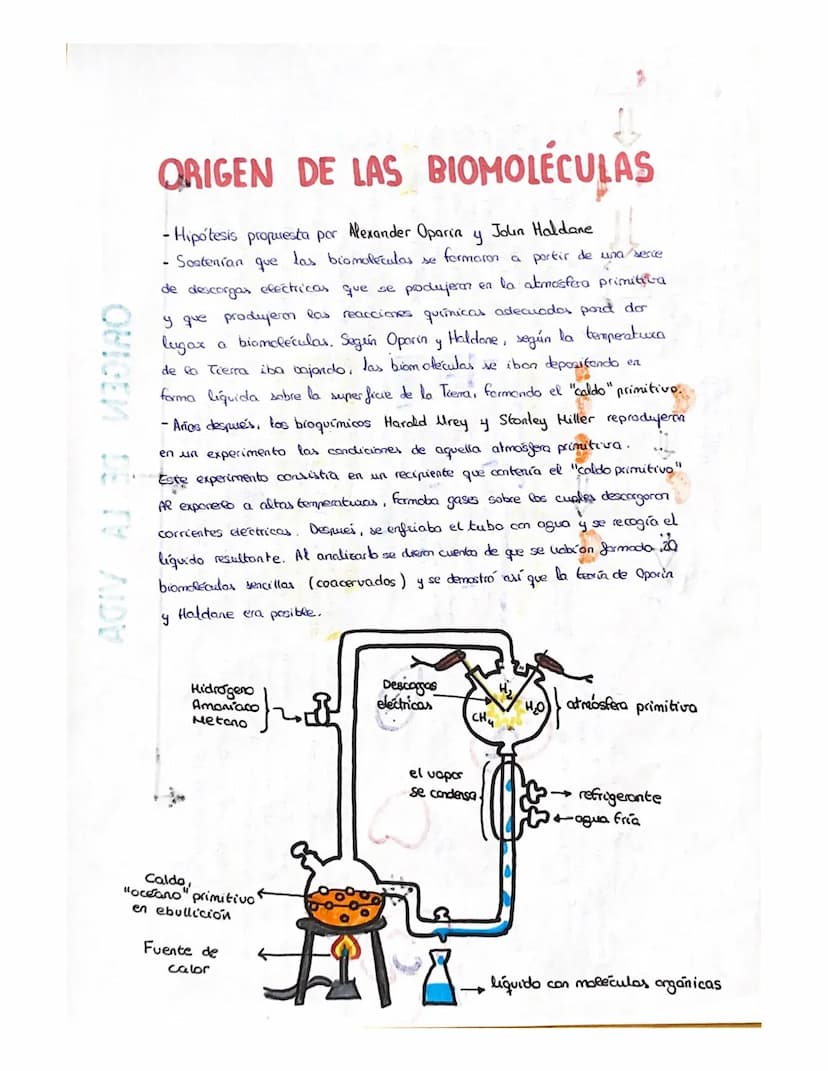 ORIGEN DE LAS BIOMOLÉCULAS
- Hipótesis propuesta por Alexander Oparin y John Haldane
- Sostenían que las biomoléculas se formaron a partir de una serie
de descargas eléctricas que se produjeron en la atmosfera primitiva
y que produjeron las reacciones químicas adecuadas para dar
lugar a biomoléculas. Según Oparin y Haldane, según la temperatura
de la Tierra iba bajando, las biomoléculas se iban depositando en
forma líquida sobre la superficie de la Tierra, formando el "caldo" primitivo.
- Años después, los bioquímicos Harold Urey y Stanley Miller reprodujeron
en un experimento las condiciones de aquella atmosfera primitiva.
Este experimento consistía en un recipiente que contenía el "caldo primitivo"
Al exponerlo a altas temperaturas, formaba gases sobre los cuales descargaron
corrientes eléctricas. Después, se enfriaba el tubo con agua y se recogía el
líquido resultante. Al analizarlo se dieron cuenta de que se habían formado 20
biomoléculas sencillas (coacervados) y se demostró así que la teoría de Oparin
y Haldane era posible.
Hidrógeno
Amoníaco
Metano
Descargas
eléctricas
H2
H2O
CH4
atmósfera primitiva
el vapor
se condensa
refrigerante
agua fría
Caldo,
"océano" primitivo
en ebullición
Fuente de
calor
líquido con moléculas orgánicas
ORIGEN DE LA VIDA